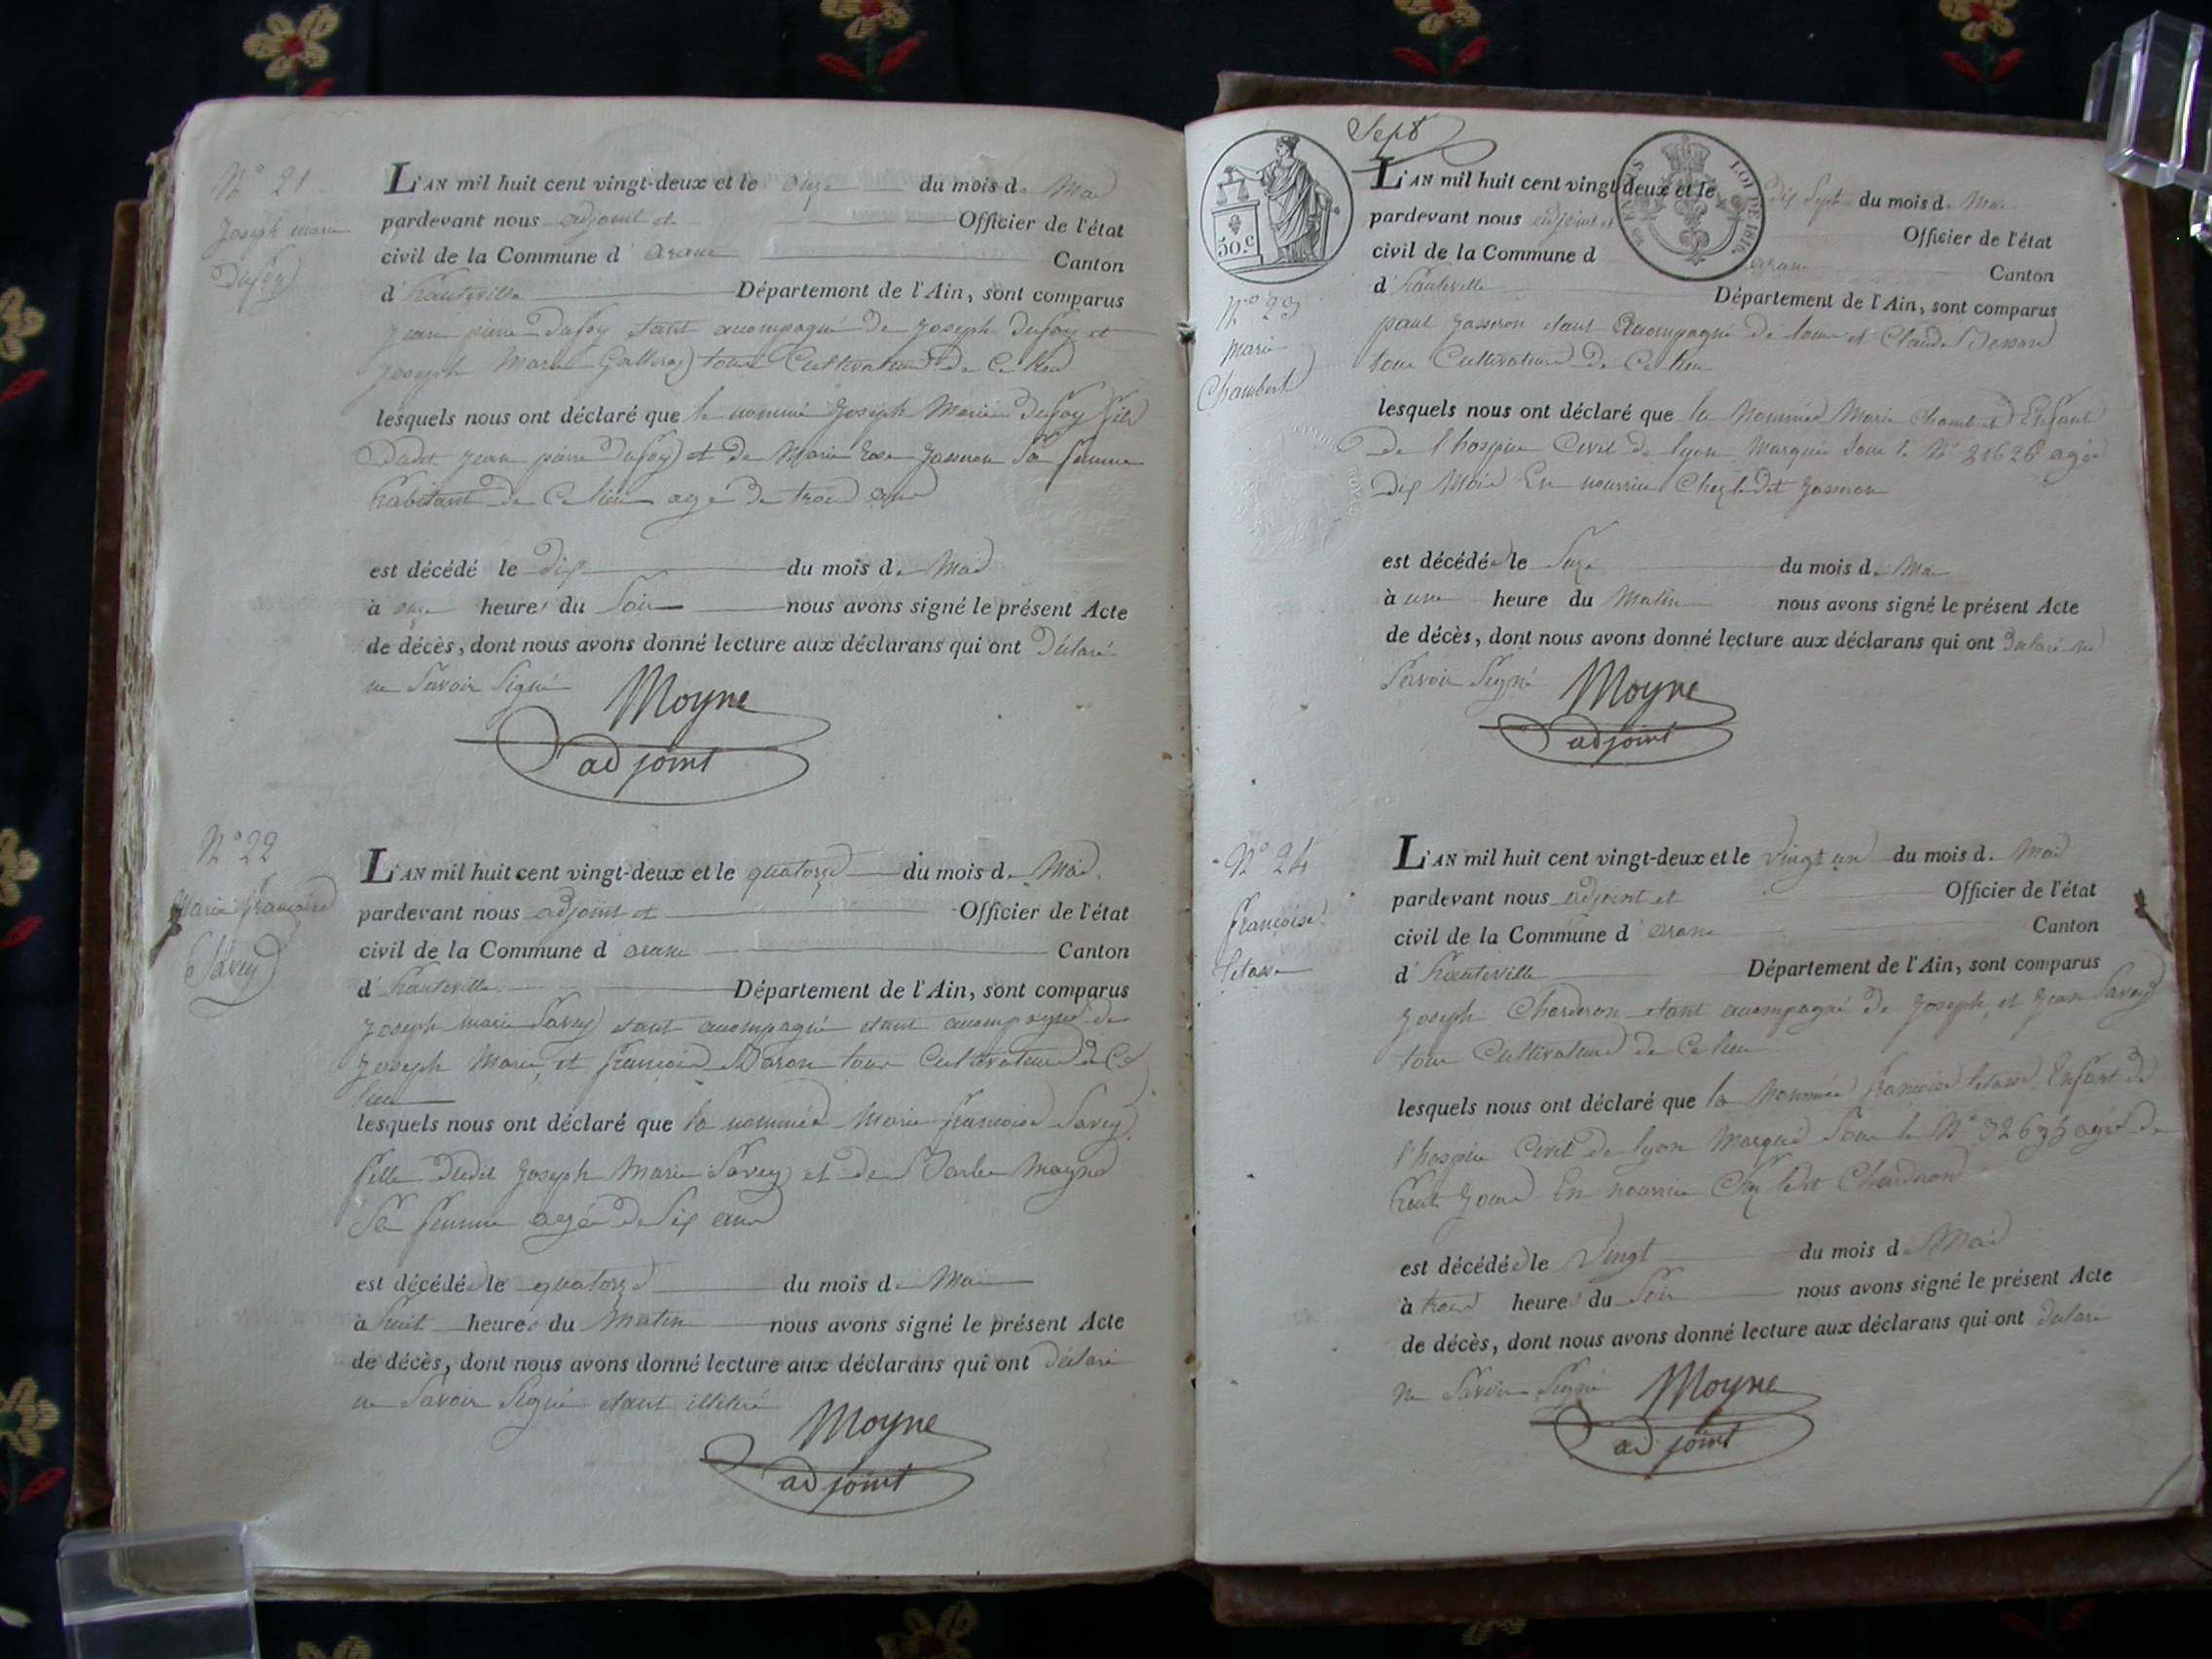 N° 21
Joseph marie
Dufoy
L'AN mil huit cent vingt-deux et le onze du mois de Mai
pardevant nous adjoint et Officier de l'état
civil de la Commune d'aranc Canton
d'hauteville Département de l'Ain, sont comparus
jean pierre Dufoy etant acompagné de joseph Dufoy et
joseph Marie tous Cultivateurs de Ce lieu
lesquels nous ont déclaré que le nommé joseph Marie Dufoy fils
Dudit jean pierre Dufoy et de Marie Rose jasseron Sa femme
habitant de Ce lieu agé de trois ans
est décédé le dix du mois de Mai
à onze heures du Soir nous avons signé le présent Acte
de décès, dont nous avons donné lecture aux déclarans qui ont Déclaré
ne Savoir Signé
Moyne
adjoint
N° 22
Marie françoise
Savey
L'AN mil huit cent vingt-deux et le quatorze du mois de Mai
pardevant nous adjoint et Officier de l'état
civil de la Commune d'aranc Canton
d'hauteville Département de l'Ain, sont comparus
joseph marie Savey etant acompagné etant acompagné de
joseph Marie, et françois tous Cultivateurs de Ce
lieu
lesquels nous ont déclaré que la nommée Marie françoise Savey
fille Dudit joseph Marie Savey et de Barbe Moyne
Sa femme agée de Six ans
est décédée le quatorze du mois de Mai
à huit heures du Matin nous avons signé le présent Acte
de décès, dont nous avons donné lecture aux déclarans qui ont déclaré
ne Savoir Signé etant illitéré
Moyne
adjoint
Sept
50.c
50 CENTS
LOI DE 1816
N° 23
Marie
Chambert
L'AN mil huit cent vingt-deux et le dix Sept du mois de Mai
pardevant nous adjoint et Officier de l'état
civil de la Commune d'aranc Canton
d'hauteville Département de l'Ain, sont comparus
paul jasseron etant acompagné de et Claude
tous Cultivateurs de Ce lieu
lesquels nous ont déclaré que la Nommée Marie Chambert Enfant
De l'hospice Civil de lyon Marquée Sous le N° 31626 agée
Dix Mois En nourrice Chez le Dit jasseron
est décédée le Seize du mois de Mai
à une heure du Matin nous avons signé le présent Acte
de décès, dont nous avons donné lecture aux déclarans qui ont Déclaré ne
Savoir Signé
Moyne
adjoint
N° 24
françoise
L'AN mil huit cent vingt-deux et le vingt un du mois de Mai
pardevant nous adjoint et Officier de l'état
civil de la Commune d'aranc Canton
d'hauteville Département de l'Ain, sont comparus
joseph Chardron etant acompagné de joseph, et jean Savey
tous Cultivateurs de Ce lieu
lesquels nous ont déclaré que la Nommée françoise Enfant de
l'hospice Civil de lyon Marqué Sous le N° agée de
huit jours En nourrice Chez le Dit Chardron
est décédée le Vingt du mois de Mai
à trois heures du Soir nous avons signé le présent Acte
de décès, dont nous avons donné lecture aux déclarans qui ont déclaré
ne Savoir Signé
Moyne
adjoint